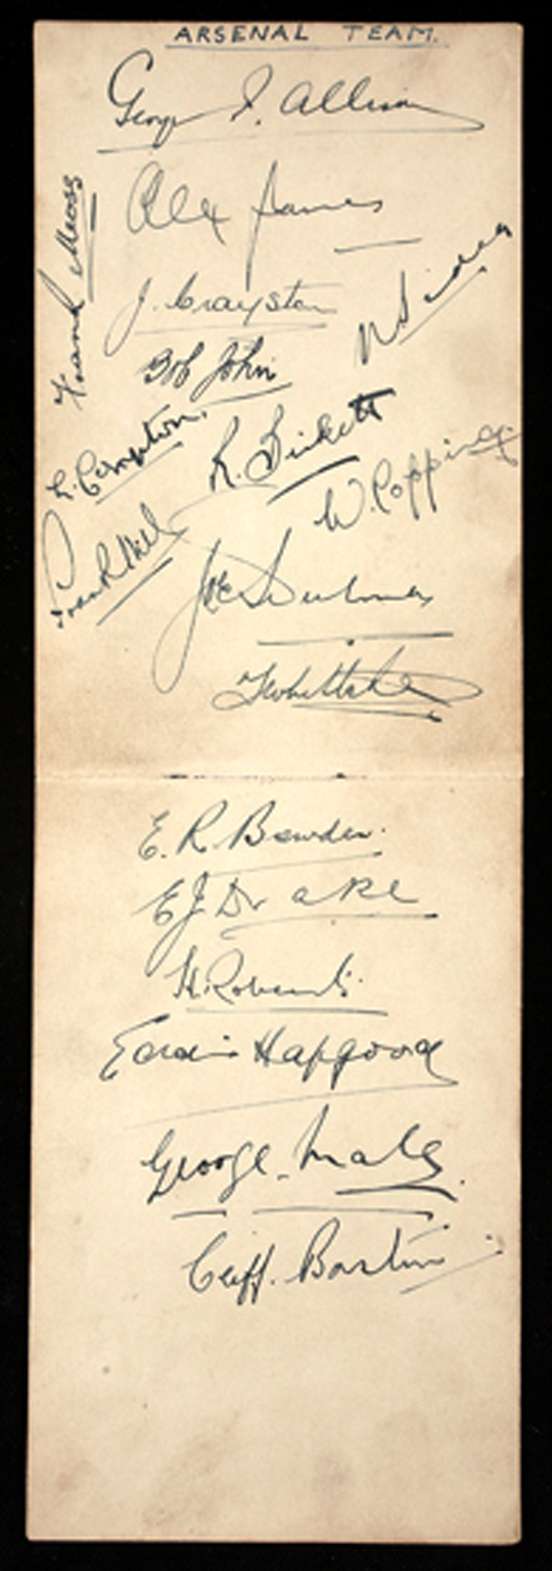 ARSENAL TEAM.
George F. Allison
Alex James
Frank Moss
J. Crayston
N Sidey
Bob John
L. Compton.
R. Birkett
W. Copping.
Frank Hill
Joe Hulme
T Whittaker
E. R. Bowden.
E J Drake
H. Roberts.
Eddie Hapgood
George Male.
Cliff. Bastin